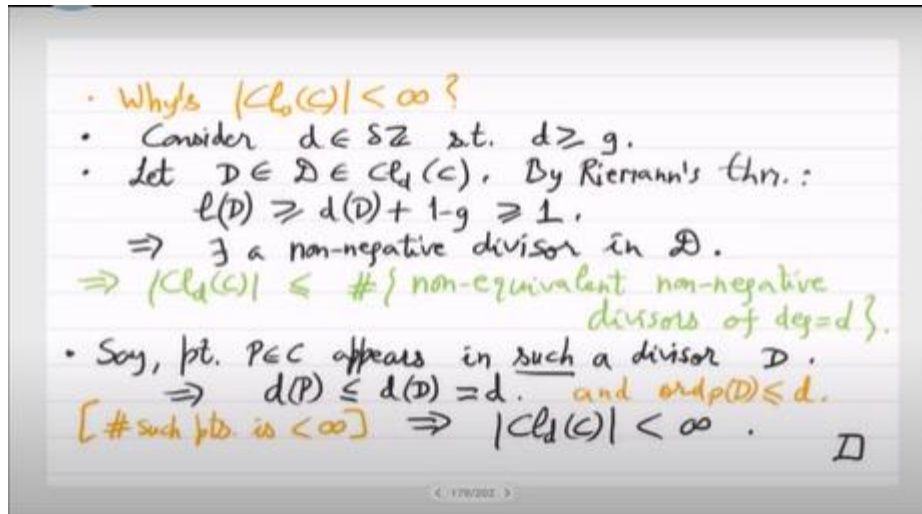 · Why's |Cl₀(C)| < ∞ ?
· Consider d ∈ δℤ s.t. d ≥ g.
· Let D ∈ 𝒟 ∈ Cl_d(C). By Riemann's thm.:
l(D) ≥ d(D) + 1-g ≥ 1.
⇒ ∃ a non-negative divisor in 𝒟.
⇒ |Cl_d(C)| ≤ #{ non-equivalent non-negative
divisors of deg=d }.
· Say, pt. P∈C appears in such a divisor D.
⇒ d(P) ≤ d(D) = d. and ord_P(D) ≤ d.
[# such pts. is < ∞] ⇒ |Cl_d(C)| < ∞ .
□
< 179/202 >